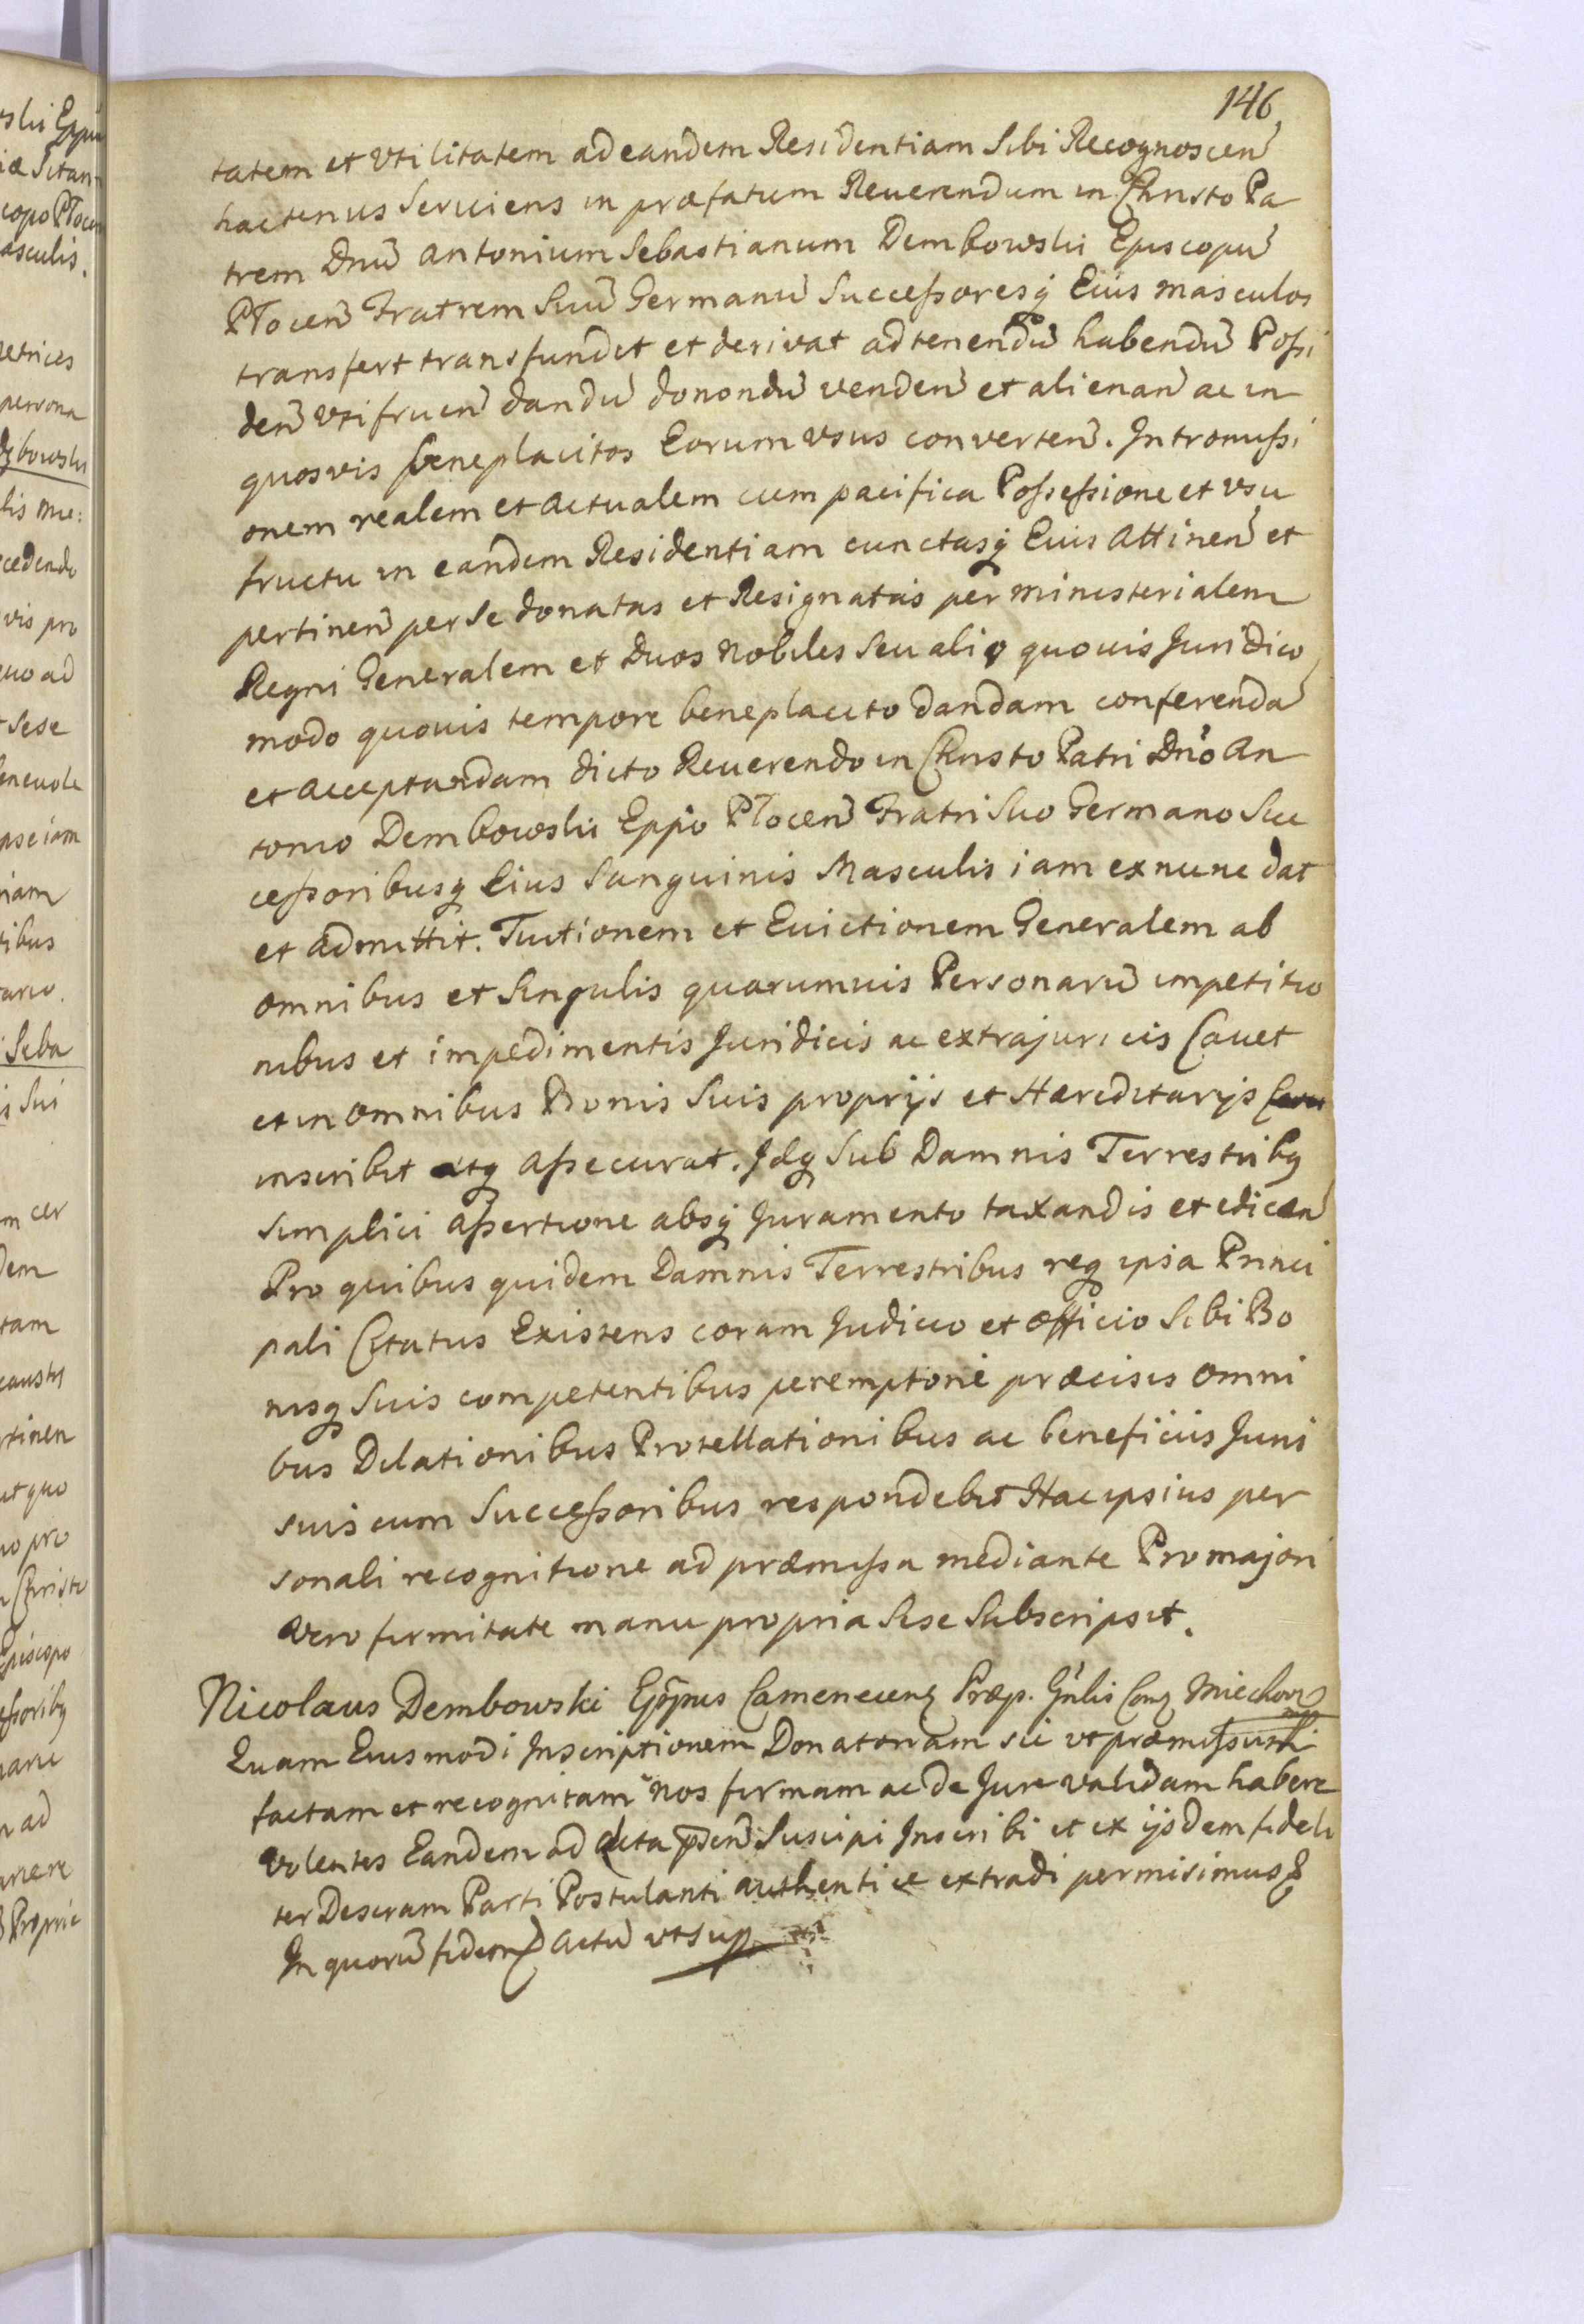 146
tatem et vtilitatem ad eandem Residentiam Sibi Recognoscen̄
hactenus Serviens in præfatum Reuerendum in Christo Pa
trem Dnū Antonium Sebastianum Dembowski Episcopū
Płocen̄ Fratrem Suū Germanū Successoresq̨ Eius masculos
transfert transfundit et derivat ad tenendū habendū Possi
den̄ vtifruen̄ dandū donondū venden̄ et alienan̄ ac in
quosvis beneplacitos Eorum vsus converten̄. Intromissi
onem realem et actualem cum pacifica Possessione et vsu
fructu in eandem Residentiam cunctasq̨ Euis Attinen̄ et
pertinen̄ per Se donatas et Resignatas per ministerialem
Regni Generalem et Duos Nobiles Seu alio quouis Juridico
modo quouis tempore beneplacito dandam conferendā
et acceptandam dicto Reuerendo in Christo Patri Dnō An
tonio Dembowski Eppo Płocen̄ Fratri Suo Germano Suc
cessoribusq̨ Eius Sanguinis Masculis iam ex nunc dat
et admittit. Tuitionem et Euictionem Generalem ab
omnibus et Singulis quarumuis Personarū impetitio
nibus et impedimentis Juridicis ac extrajuricis Cauet
et in omnibus Bonis Suis proprijs et Hæreditarijs
inscribit atq̨ assecurat. Idq̨ Sub Damnis Terrestribq̨
simplici assertione absq̨ Juramento taxandis et edicen̄
Pro quibus quidem Damnis Terrestribus req̨ ipsa Princi
pali Citatus Existens coram Judicio et officio Sibi Bo
nisq̨ Suis competentibus peremptorie præcisis omni
bus Dilationibus Protellationibus ac beneficiis Juris
suis cum Successoribus respondebit Hac ipsius per
sonali recognitione ad præmissa mediante Pro majori
vero firmitate manu propria Sese Subscripsit.
Nicolaus Dembowski Eppus Camenecenz Præp. Gn̄lis Conz Miechovz
Quam Eiusmodi Inscriptionem Donatoriam sic vt præmissū est
factam et recognitam nos firmam ac de Jure validam habere
volentes Eandem ad Acta p̄sen̄ Suscipi Inscribi et ex ijsdem fideli
ter Descram Parti Postulanti authentice extradi permisimus
In quorū fidem Actū vt sup